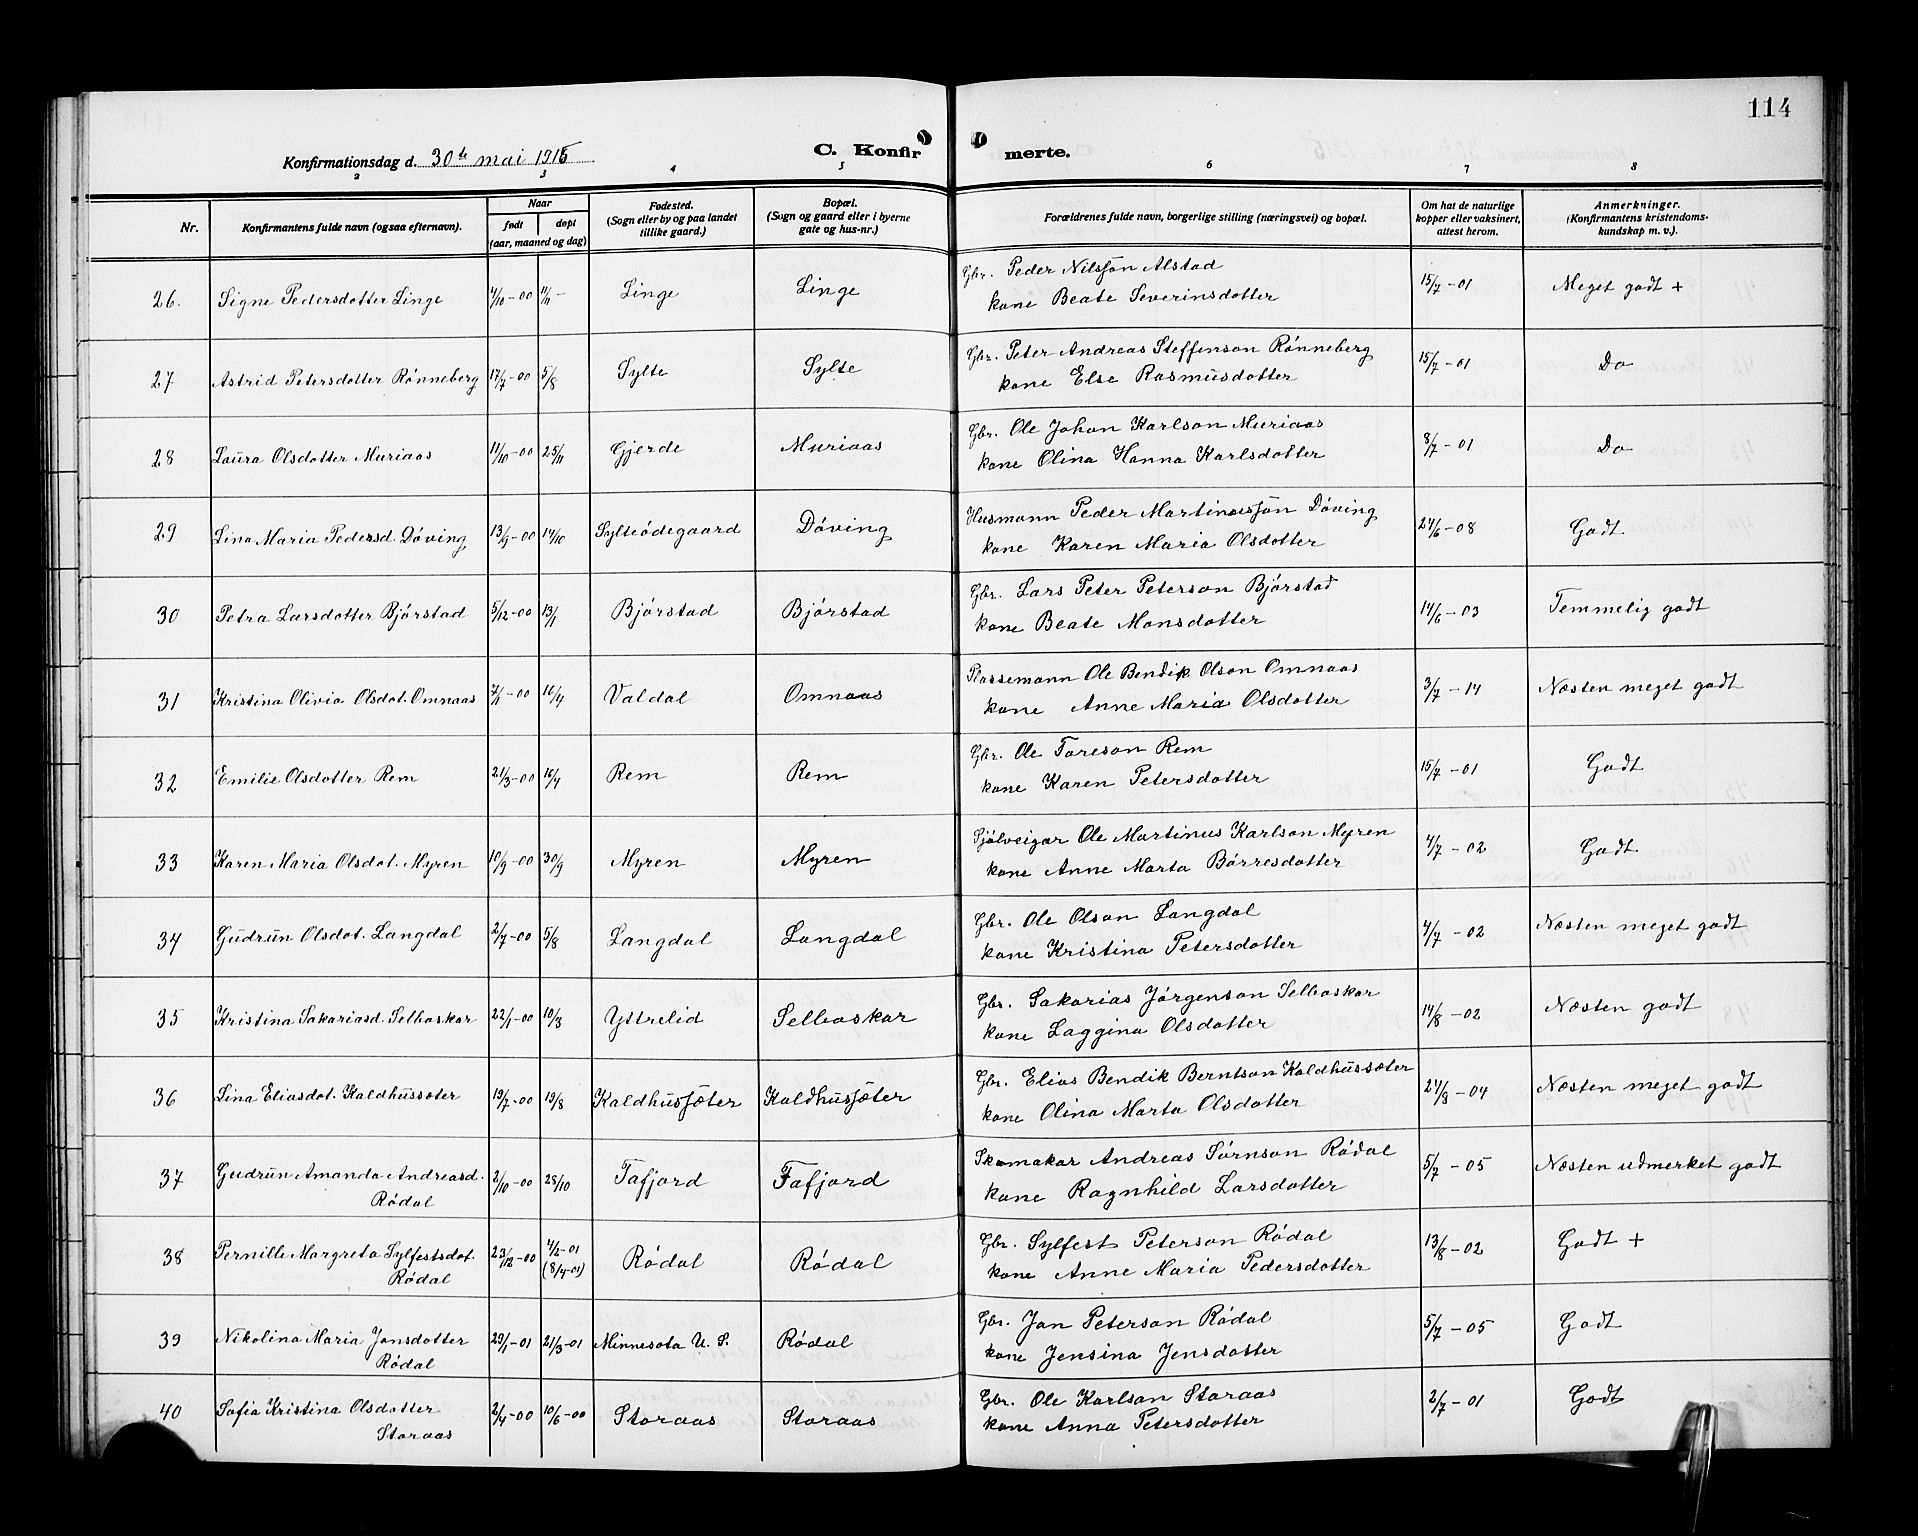 114
Konfirmationsdag d. 30te mai 1915
C. Konfirmerte.
2 3 4 5 6 7 8
Nr. Konfirmantens fulde navn (ogsaa efternavn). Naar født døpt (aar, maaned og dag) Fødested. (Sogn eller by og paa landet tillike gaard.) Bopæl. (Sogn og gaard eller i byerne gate og hus-nr.) Forældrenes fulde navn, borgerlige stilling (næringsvei) og bopæl. Om hat de naturlige kopper eller vaksinert, attest herom. Anmerkninger. (Konfirmantens kristendoms-kundskap m. v.).
26. Signe Pedersdotter Linge 4/10-00 11/11 - Linge Linge Gbr. Peder Nilsson Alstad 15/7-01 Meget godt +
kone Beate Severinsdotter
27 Astrid Petersdotter Rønneberg 17/7-00 5/8 Sylte Sylte Gbr. Peter Andreas Steffenson Rønneberg 15/7-01 Do
kone Else Rasmusdotter
28 Laura Olsdotter Muriaas 11/10-00 25/11 Gjerde Muriaas Gbr. Ole Johan Karlson Muriaas 8/7-01 Do
kone Olina Hanna Karlsdotter
29 Lina Maria Pedersd. Døving 13/9-00 14/10 Sylteødegaard Døving Husmann Peder Martinusson Døving 24/6-08 Godt
kone Karen Maria Olsdotter
30 Petra Larsdotter Bjørstad 5/12-00 13/1 Bjørstad Bjørstad Gbr. Lars Peter Peterson Bjørstad 14/6-03 Temmelig godt
kone Beate Monsdotter
31 Kristina Olivia Olsdot. Omnaas 7/1-00 16/4 Valdal Omnaas Plassemann Ole Bendik Olson Omnaas 3/7-14 Næsten meget godt
kone Anne Maria Olsdotter
32 Emilie Olsdotter Rem 21/3-00 15/4 Rem Rem Gbr. Ole Toreson Rem 15/7-01 Godt
kone Karen Petersdotter
33 Karen Maria Olsdot. Myren 10/9-00 30/9 Myren Myren Sjølveigar Ole Martinus Karlson Myren 4/7-02 Godt
kone Anne Marta Børresdotter
34 Gudrun Olsdot. Langdal 2/7-00 5/8 Langdal Langdal Gbr. Ole Olson Langdal 4/7-02 Næsten meget godt
kone Kristina Petersdotter
35 Kristina Sakariasd. Selboskar 22/1-00 10/3 Yttrelid Selboskar Gbr. Sakarias Jørgenson Selboskar 14/8-02 Næsten godt
kone Laggina Olsdotter
36 Lina Eliasdot. Kaldhussæter 19/7-00 19/8 Kaldhussæter Kaldhussæter Gbr. Elias Bendik Berntson Kaldhussæter 24/9-04 Næsten meget godt
kone Olina Marta Olsdotter
37 Gudrun Amanda Andreasd. Rødal 2/10-00 28/10 Tafjord Tafjord Skomakar Andreas Sørnson Rødal 5/7-05 Næsten udmerket godt
kone Ragnhild Larsdotter
38 Pernille Margreta Sylfestsdot. Rødal 23/12-00 4/2-01 (8/4-01) Rødal Rødal Gbr. Sylfest Peterson Rødal 13/8-02 Godt +
kone Anne Maria Pedersdotter
39 Nikolina Maria Jonsdotter Rødal 29/1-01 21/3-01 Minnesota U. S. Rødal Gbr. Jon Peterson Rødal 5/7-05 Godt
kone Jensina Jensdotter
40 Sofia Kristina Olsdotter Storaas 2/4-00 10/6-00 Storaas Storaas Gbr. Ole Karlson Storaas 2/7-01 Godt
kone Anna Petersdotter